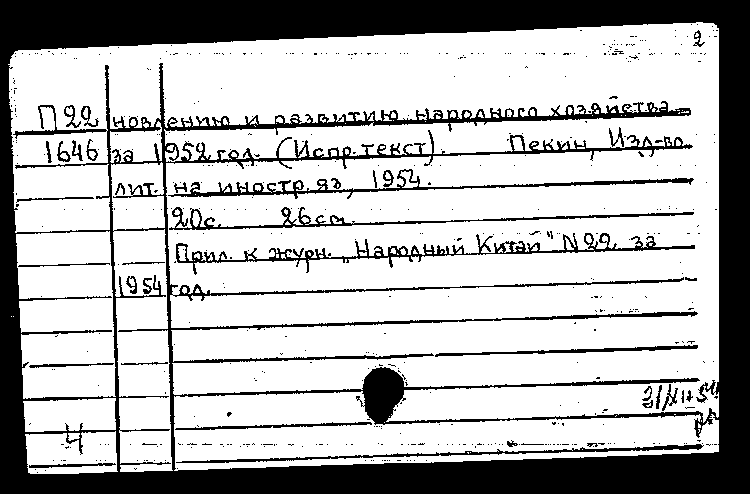 2
П 22 новлению и развитию народного хозяйства
1646 за 1952 год. (Испр. текст). Пекин, Изд-во
лит. на иностр. яз, 1954.
20с. 26см.
Прил. к журн. „Народный Китай" N 22, за
1954 год.
4